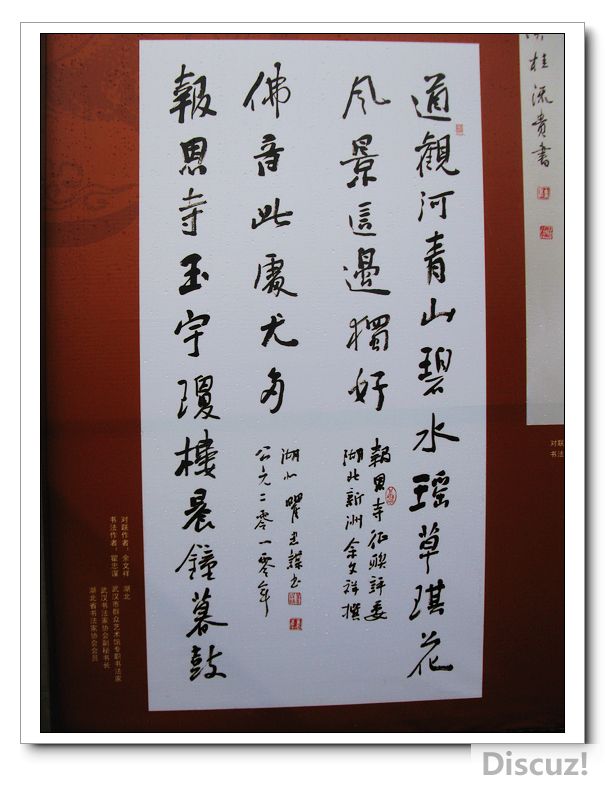 桂流贵書
道觀河青山碧水瑶草琪花
風景這邊獨好
報恩寺征聯評委
湖北新洲余文祥撰
佛音此處尤多
湖北瞿忠謀书
公元二零一零年
報恩寺玉宇瓊樓晨鐘暮鼓
对联作者：余文祥 湖北
书法作者：瞿忠谋 武汉市群众艺术馆专职书法家
武汉书法家协会副秘书长
湖北省书法家协会会员
对联
书法
Discuz!